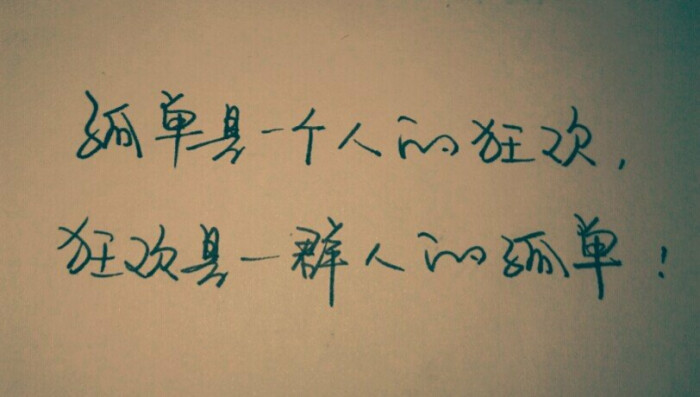 孤单是一个人的狂欢,
狂欢是一群人的孤单!